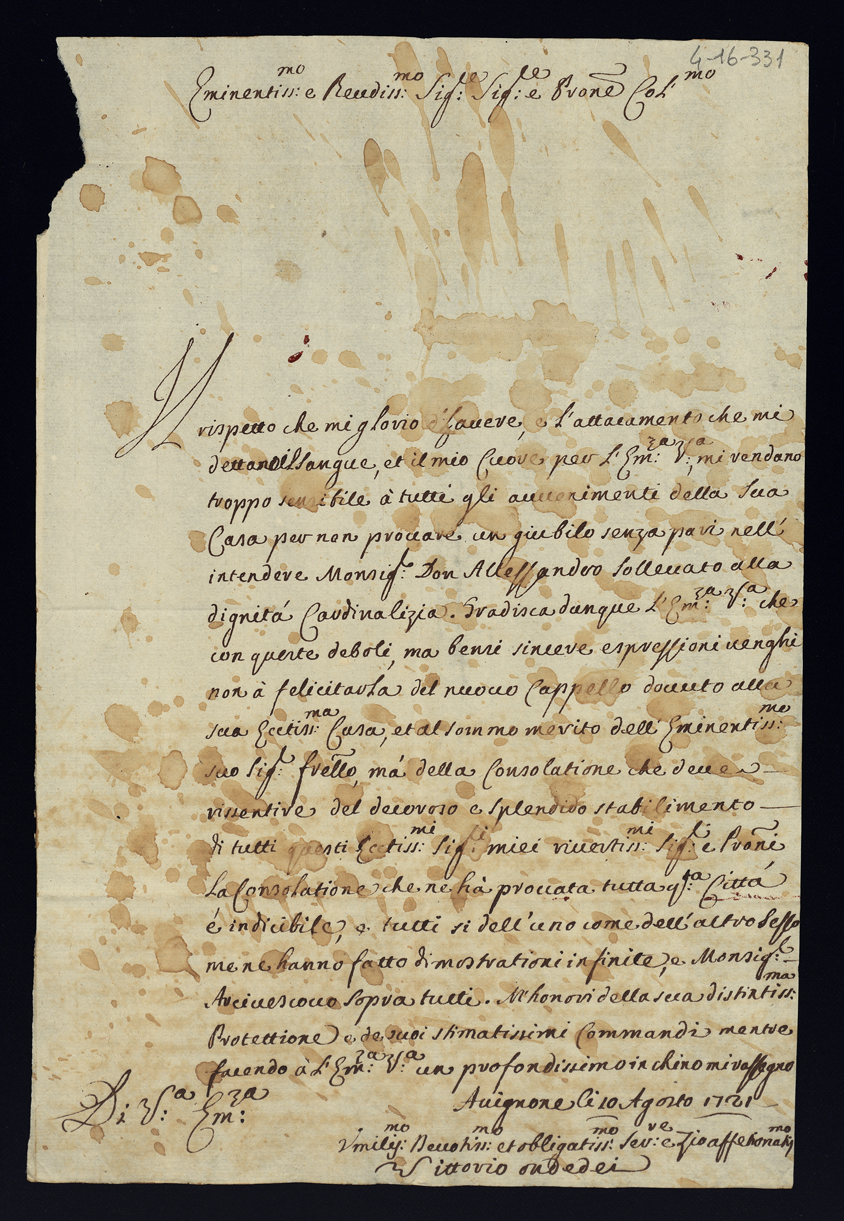 4-16-331
Eminentiss:mo e Reudiss:mo Sig:re Sig:re e Prone Col:mo
Il rispetto che mi glorio d'havere, e l'attacamento che mi
dettano il sangue, et il mio Cuore per l'Em:za V:ra, mi rendano
troppo sensibile à tutti gli auuenimenti della Sua
Casa per non prouare un giubilo senza pari nell'
intendere Monsig:r Don Allessandro solleuato alla
dignitá Cardinalizia. Gradisca dunque l'Em:za V:ra che
con queste deboli, ma bensi sincere espressioni uenghi
non à felicitarla del nuouo Cappello douuto alla
sua Ecctiss:ma Casa, et al sommo merito dell'Eminentiss:mo
suo Sig:r frello, má della Consolatione che deue
rissentire del decoroso e splendido stabilimento
di tutti questi Ecctiss:mi Sig:ri miei riueritiss:mi Sig:ri e Proni
La Consolatione che ne há prouata tutta q:sta Cittá
é indicibile, e tutti si dell'uno come dell'altro Sesso
me ne hanno fatto dimostrationi infinite, e Monsig:r
Arciuescouo sopra tutti. M'honori della sua distintiss:ma
Protettione e de suoi stimatissimi Commandi mentre
facendo à l'Em:za V:ra un profondissimo inchino mi rassegno
Di V:ra Em:za
Auignone li 10 Agosto 1721
Vmiliss:mo Deuotiss:mo et obligatiss:mo Ser:re e Zio affetionatiss:mo
Vittorio ondedei